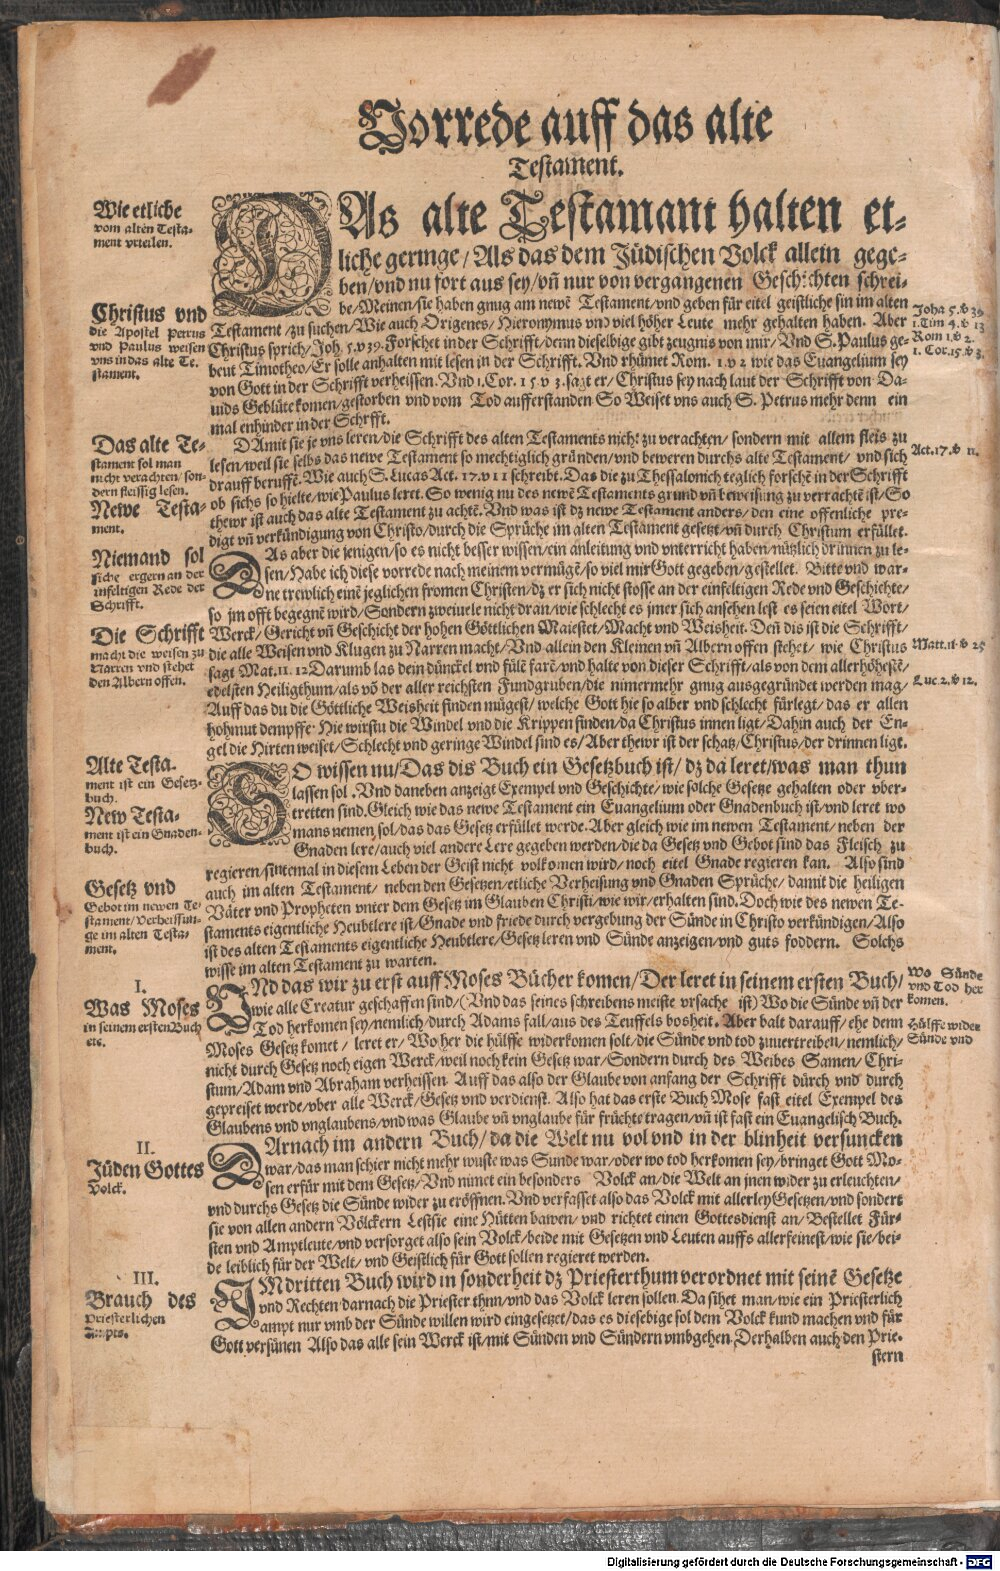 Vorrede auff das alte
Testament.
Wie etliche
vom alten Testa-
ment vrteilen.
DAs alte Testamant halten et-
liche geringe / Als das dem Jüdischen Volck allein gege-
ben / vnd nu fort aus sey / vñ nur von vergangenen Geschichten schrei-
be / Meinen / sie haben gnug am newẽ Testament / vnd geben für eitel geistliche sin im alten
Testament / zu suchen / Wie auch Origenes / Hieronymus vnd viel höher Leute mehr gehalten haben. Aber
Christus sprich / Joh. 5. v 39. Forschet in der Schrifft / denn dieselbige gibt zeugnis von mir / Vnd S. Paulus ge-
beut Timotheo / Er solle anhalten mit lesen in der Schrifft. Vnd rhümet Rom. 1. v 2 wie das Euangelium sey
von Gott in der Schrifft verheissen. Vnd 1. Cor. 15. v 3. sagt er / Christus sey nach laut der Schrifft von Da-
uids Geblüte komen / gestorben vnd vom Tod aufferstanden So Weiset vns auch S. Petrus mehr denn ein
mal enhinder in der Schrfft.
Christus vnd
die Apostel Petrus
vnd Paulus weisen
vns in das alte Te-
stament.
Joha 5. v 39
1. Tim 4. v 13
Rom 1. v 2.
1. Cor. 15. v 3.
DAmit sie je vns leren / die Schrifft des alten Testaments nicht zu verachten / sondern mit allem fleis zu
lesen / weil sie selbs das newe Testament so mechtiglich gründen / vnd beweren durchs alte Testament / vnd sich
drauff beruffẽ. Wie auch S. Lucas Act. 17. v 11 schreibt. Das die zu Thessalonich teglich forschẽ in der Schrifft
ob sichs so hielte / wie Paulus leret. So wenig nu des newẽ Testaments grund vñ beweisung zu verrachtẽ ist / So
thewr ist auch das alte Testament zu achtẽ. Vnd was ist dz newe Testament anders / den eine offenliche pre-
digt vñ verkündigung von Christo / durch die Sprüche im alten Testament gesetzt / vñ durch Christum erfüllet.
Das alte Te-
stament sol man
nicht verachten / son-
dern fleissig lesen.
Newe Testa-
ment.
Act. 17. v 11.
DAs aber die jenigen / so es nicht besser wissen / ein anleitung vnd vnterricht haben / nützlich drinnen zu le-
sen / Habe ich diese vorrede nach meinem vermügẽ / so viel mir Gott gegeben / gestellet. Bitte vnd war-
ne trewlich einẽ jeglichen fromen Christen / dz er sich nicht stosse an der einfeltigen Rede vnd Geschichte /
so jm offt begegnẽ wird / Sondern zweiuele nicht dran / wie schlecht es jmer sich ansehen lest es seien eitel Wort /
Werck / Gericht vñ Geschicht der hohen Göttlichen Maiestet / Macht vnd Weisheit. Deñ dis ist die Schrifft /
die alle Weisen vnd Klugen zu Narren macht / Vnd allein den Kleinen vñ Albern offen stehet / wie Christus
sagt Mat. 11. 12 Darumb las dein dünckel vnd fülẽ farẽ / vnd halte von dieser Schrifft / als von dem allerhöhestẽ /
edelsten Heiligthum / als võ der aller reichsten Fundgruben / die nimermehr gnug ausgegründet werden mag /
Auff das du die Göttliche Weisheit finden mügest / welche Gott hie so alber vnd schlecht fürlegt / das er allen
hohmut dempffe. Hie wirstu die Windel vnd die Krippen finden / da Christus innen ligt / Dahin auch der En-
gel die Hirten weiset / Schlecht vnd geringe Windel sind es / Aber thewr ist der schatz / Christus / der drinnen ligt.
Niemand sol
siche ergern an der
infeltigen Rede der
Schrifft.
Die Schrifft
macht die weisen zu
Narren vnd stehet
den Albern offen.
Matt. 11. v 25
Luc. 2. v 12.
SO wissen nu / Das dis Buch ein Gesetzbuch ist / dz da leret / was man thun
lassen sol. Vnd daneben anzeigt Exempel vnd Geschichte / wie solche Gesetze gehalten oder vber-
tretten sind. Gleich wie das newe Testament ein Euangelium oder Gnadenbuch ist / vnd leret wo
mans nemen sol / das das Gesetz erfüllet werde. Aber gleich wie im newen Testament / neben der
Gnaden lere / auch viel andere Lere gegeben werden / die da Gesetz vnd Gebot sind das Fleisch zu
regieren / sintemal in diesem Leben der Geist nicht volkomen wird / noch eitel Gnade regieren kan. Also sind
auch im alten Testament / neben den Gesetzen / etliche Verheisung vnd Gnaden Sprüche / damit die heiligen
Väter vnd Propheten vnter dem Gesetz im Glauben Christi / wie wir / erhalten sind. Doch wie des newen Te-
staments eigentliche Heubtlere ist / Gnade vnd friede durch vergebung der Sünde in Christo verkündigen / Also
ist des alten Testaments eigentliche Heubtlere / Gesetz leren vnd Sünde anzeigen / vnd guts foddern. Solchs
wisse im alten Testament zu warten.
Alte Testa-
ment ist ein Gesetz-
buch.
New Testa-
ment ist ein Gnaden-
buch.
Gesetz vnd
Gebot im newen Te-
stament / Verheissun-
ge im alten Testa-
ment.
VNd das wir zu erst auff Moses Bücher komen / Der leret in seinem ersten Buch /
wie alle Creatur geschaffen sind / (Vnd das seines schreibens meiste vrsache ist) Wo die Sünde vñ der
Tod herkomen sey / nemlich / durch Adams fall / aus des Teuffels bosheit. Aber balt darauff / ehe denn
Moses Gesetz komet / leret er / Wo her die hülffe widerkomen solt / die Sünde vnd tod zuuertreiben / nemlich /
nicht durch Gesetz noch eigen Werck / weil noch kein Gesetz war / Sondern durch des Weibes Samen / Chri-
stum / Adam vnd Abraham verheissen Auff das also der Glaube von anfang der Schrifft dürch vnd durch
gepreiset werde / vber alle Werck / Gesetz vnd verdienst. Also hat das erste Buch Mose fast eitel Exempel des
Glaubens vnd vnglaubens / vnd was Glaube vñ vnglaube für früchte tragen / vñ ist fast ein Euangelisch Buch.
I.
Was Moses
in seinem ersten Buch
etc.
Wo Sünde
vnd Tod her
komen.
Hülffe wider
Sünde vnd
DArnach im andern Buch / da die Welt nu vol vnd in der blinheit versuncken
war / das man schier nicht mehr wuste was Sunde war / oder wo tod herkomen sey / bringet Gott Mo-
sen erfür mit dem Gesetz / Vnd nimet ein besonders Volck an / die Welt an jnen wider zu erleuchten /
vnd durchs Gesetz die Sünde wider zu eröffnen. Vnd verfasset also das Volck mit allerley Gesetzen / vnd sondert
sie von allen andern Völckern Lest sie eine Hütten bawen / vnd richtet einen Gottesdienst an / Bestellet Für-
sten vnd Amptleute / vnd versorget also sein Volck / beide mit Gesetzen vnd Leuten auffs allerfeinest / wie sie / bei-
de leiblich für der Welt / vnd Geistlich für Gott sollen regieret werden.
II.
Jüden Gottes
Volck.
IM dritten Buch wird in sonderheit dz Priesterthum verordnet mit seinẽ Gesetze
vnd Rechten / darnach die Priester thun / vnd das Volck leren sollen. Da sihet man / wie ein Priesterlich
ampt nur vmb der Sünde willen wird eingesetzet / das es diesebige sol dem Volck kund machen vnd für
Gott versünen Also das alle sein Werck ist / mit Sünden vnd Sündern vmbgehen. Derhalben auch den Prie-
stern
III.
Brauch des
Priesterlichen
Ampts.
Digitalisierung gefördert durch die Deutsche Forschungsgemeinschaft - DFG